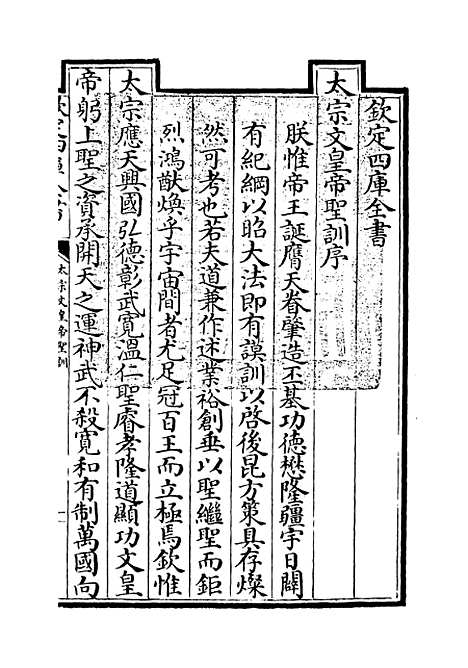 欽定四庫全書
太宗文皇帝聖訓序
朕惟帝王誕膺天眷肇造丕基功德懋隆疆宇日闢
有紀綱以昭大法即有謨訓以啓後昆方策具存燦
然可考也若夫道兼作述業裕創垂以聖繼聖而鉅
烈鴻猷煥乎宇宙間者尤足冠百王而立極焉欽惟
太宗應天興國弘德彰武寬溫仁聖睿孝隆道顯功文皇
帝躬上聖之資承開天之運神武不殺寛和有制萬國向
太宗文皇帝聖訓
一